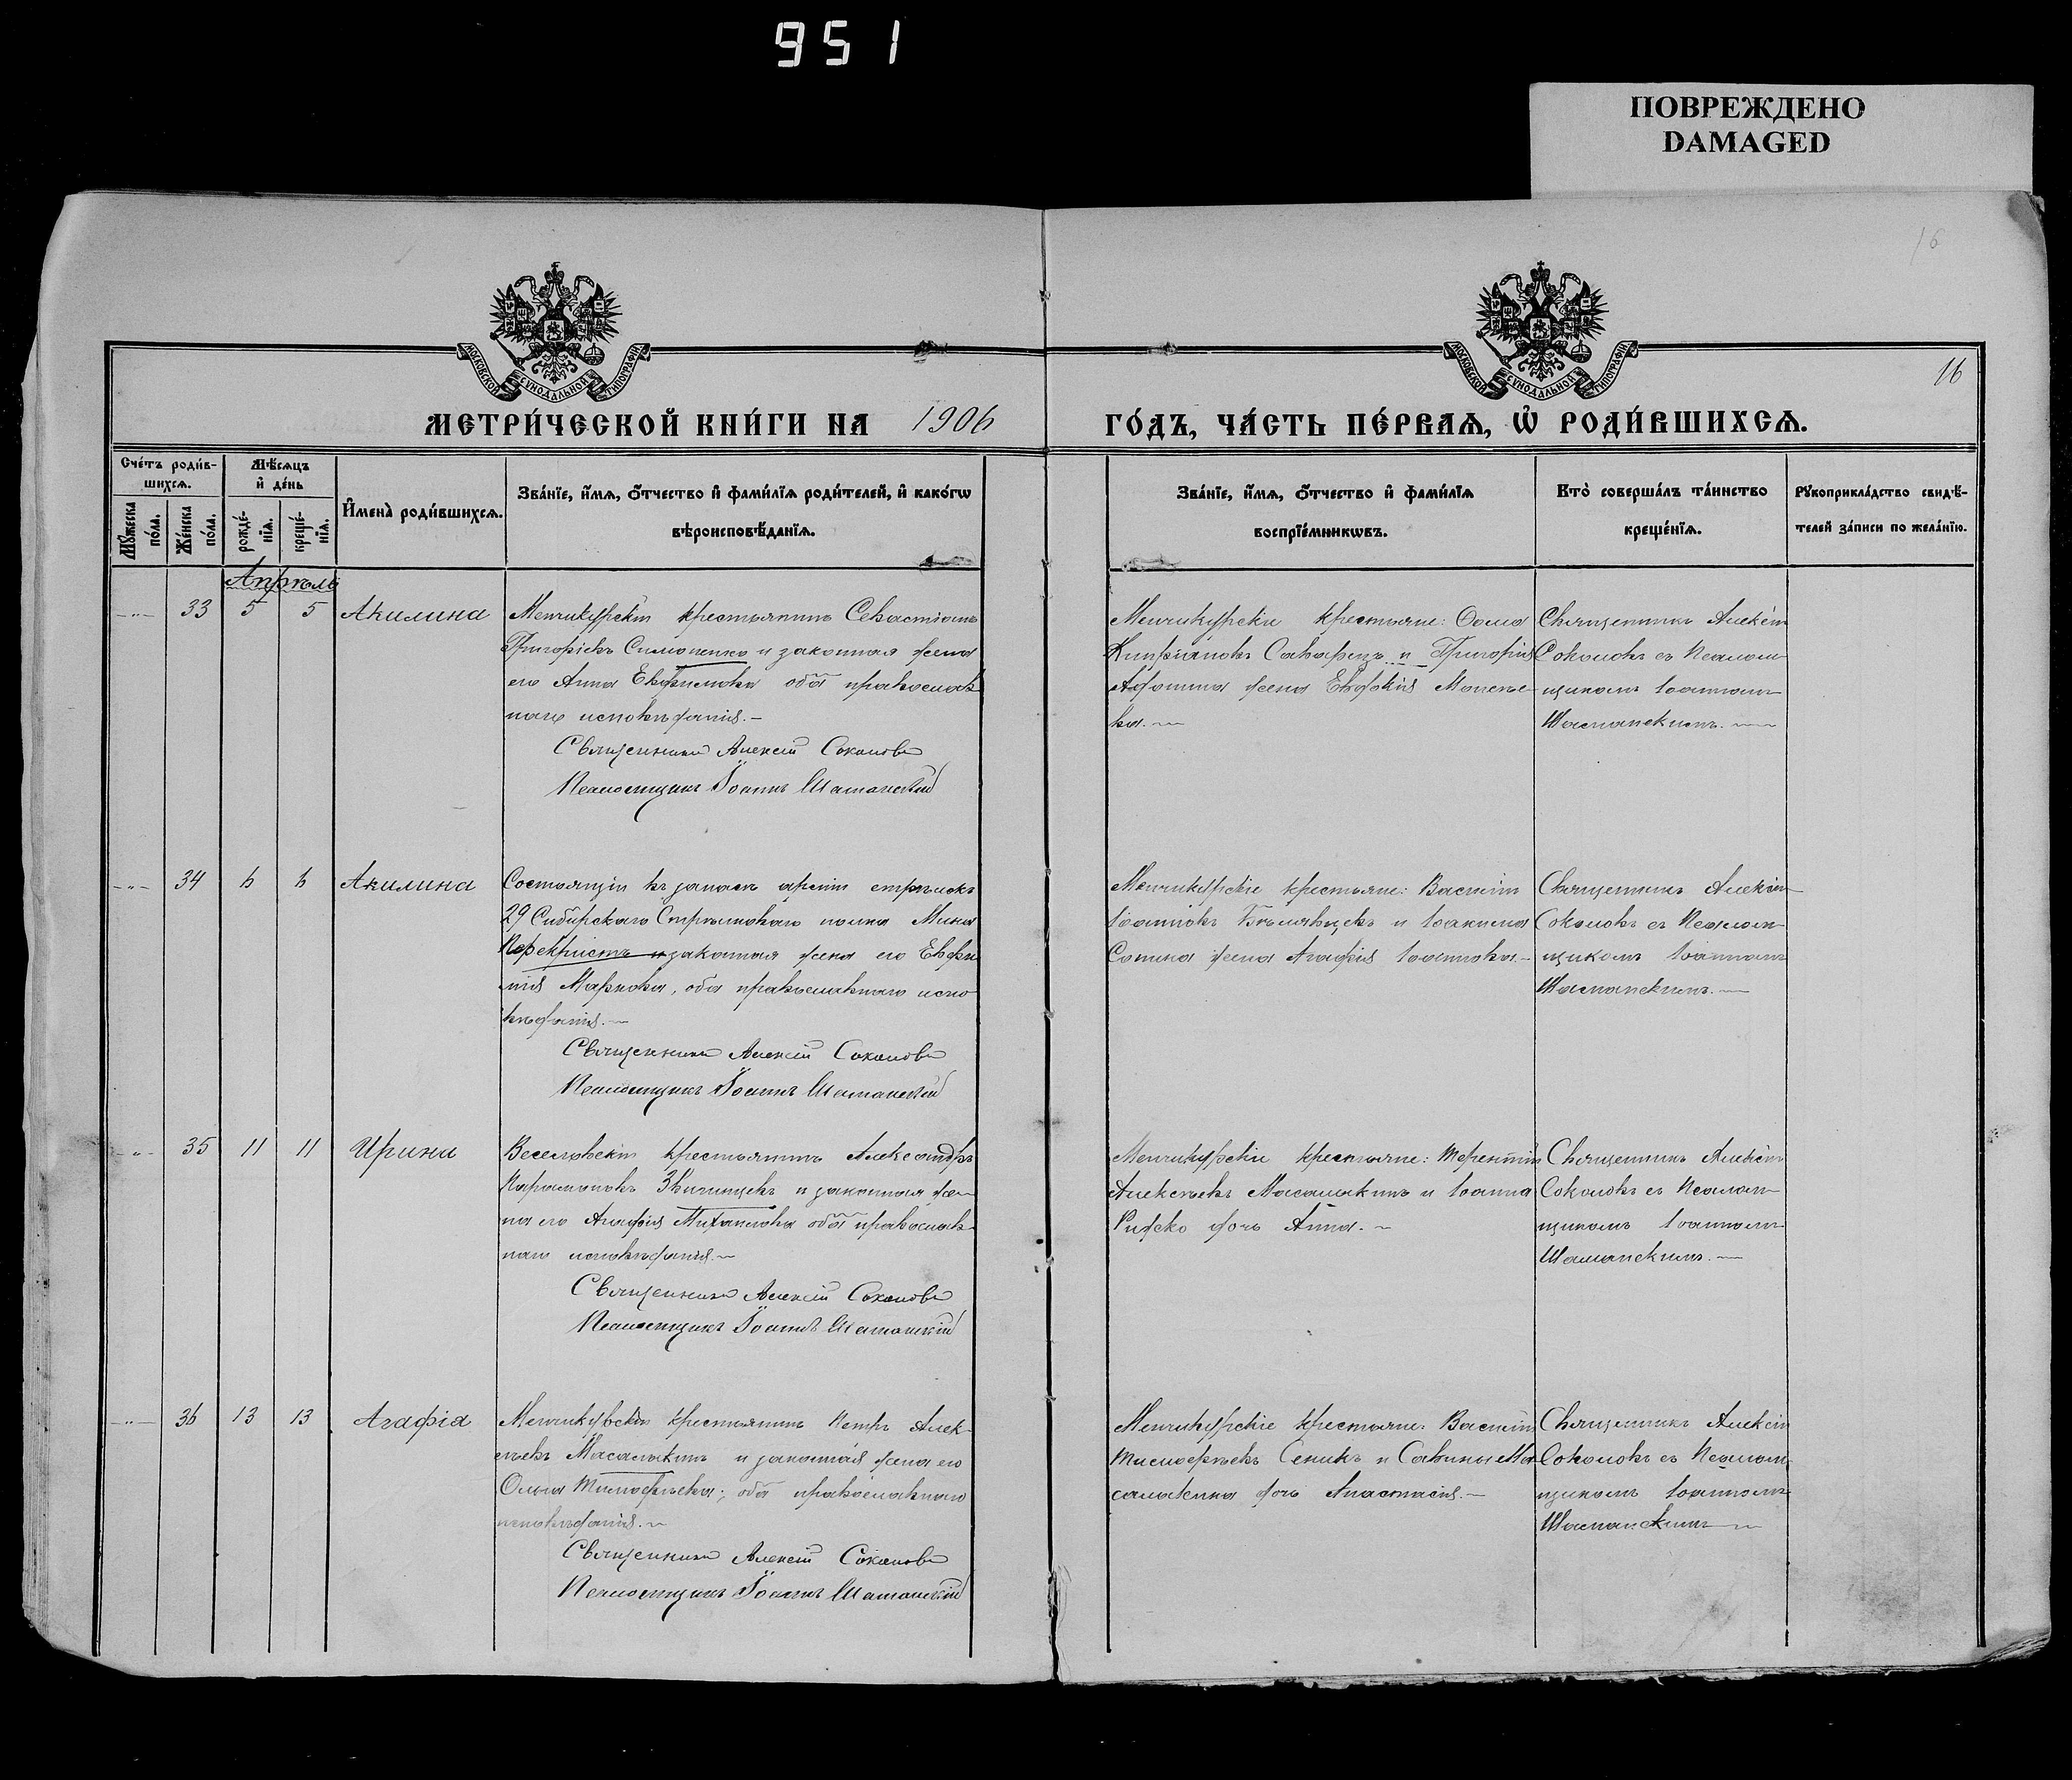 951
ПОВРЕЖДЕНО
DAMAGED
16
16
МОСКОВСКОЙ СѴНОДАЛЬНОЙ ТИПОГРАФІИ
МОСКОВСКОЙ СѴНОДАЛЬНОЙ ТИПОГРАФІИ
МЕТРИ́ЧЕСКОЙ КНИ́ГИ НА 1906
ГО́ДЪ, ЧА́СТЬ ПЕ́РВАѦ, Ѡ҆ РОДИ́ВШИХСѦ.
Сче́тъ роди́в-
шихсѧ.
Мꙋ́жеска
по́ла.
Же́нска
по́ла.
Мѣ́сѧцъ
и҆ де́нь
рожде́-
нїѧ.
креще́-
нїѧ.
И҆мена̀ роди́вшихсѧ.
Зва́нїе, и҆́мѧ, ѻ҆́тчество и҆ фами́лїѧ роди́телей, и҆ како́гѡ
вѣроисповѣ́данїѧ.
Зва́нїе, и҆́мѧ, ѻ҆́тчество и҆ фами́лїѧ
воспрїе́мникѡвъ.
Кто̀ соверша́лъ та́инство
креще́нїѧ.
Рꙋкоприкла́дство свидѣ́-
телей за́писи по жела́нїю.
Апрѣль
33 5 5 Акилина
Менчикурскій крестьянинъ Севастіанъ
Григоріевъ Симоненко и законная жена
его Анна Евфимова оба православ-
наго исповѣданія.-
Священникъ Алексій Соколовъ
Псаломщикъ Іоаннъ Шаманскій
Менчикурскіе крестьяне: Ѳома
Кипріановъ и Григорія
жена Евдокія
ва.
Священникъ Алексій
Соколовъ съ Псалом-
щикомъ Іоанномъ
Шаманскимъ.
34 6 6 Акилина
Состоящій въ запасѣ арміи стрѣлокъ
29 Сибирскаго Стрѣлковаго полка Мина
Перекристъ и законная жена его Евфи-
мія Маркова, оба православнаго испо-
вѣданія.
Священникъ Алексій Соколовъ
Псаломщикъ Іоаннъ Шаманскій
Менчикурскіе крестьяне: Василій
Іоанновъ Бѣлявцевъ и Іоакима
Сотина жена Агафія Іоаннова.-
Священникъ Алексій
Соколовъ съ Псалом-
щикомъ Іоанномъ
Шаманскимъ.
35 11 11 Ирина
Веселовскій крестьянинъ Александръ
Парамоновъ Звягинцевъ и законная же-
на его Агафія Михаилова оба православ-
наго исповѣданія.
Священникъ Алексій Соколовъ
Псаломщикъ Іоаннъ Шаманскій
Менчикурскіе крестьяне: Терентій
Алексѣевъ Масалыкинъ и Іоанна
Рудско дочь Анна.
Священникъ Алексій
Соколовъ съ Псалом-
щикомъ Іоанномъ
Шаманскимъ.
36 13 13 Агафія
Менчикурскій крестьянинъ Петръ Алек-
сѣевъ Масалыкинъ и законная жена его
Ольга Тимофѣева; оба православнаго
исповѣданія.
Священникъ Алексій Соколовъ
Псаломщикъ Іоаннъ Шаманскій
Менчикурскіе крестьяне: Василій
Тимофѣевъ Сеникъ и Савины Ма-
салыкина дочь Анастасія.
Священникъ Алексій
Соколовъ съ Псалом-
щикомъ Іоанномъ
Шаманскимъ